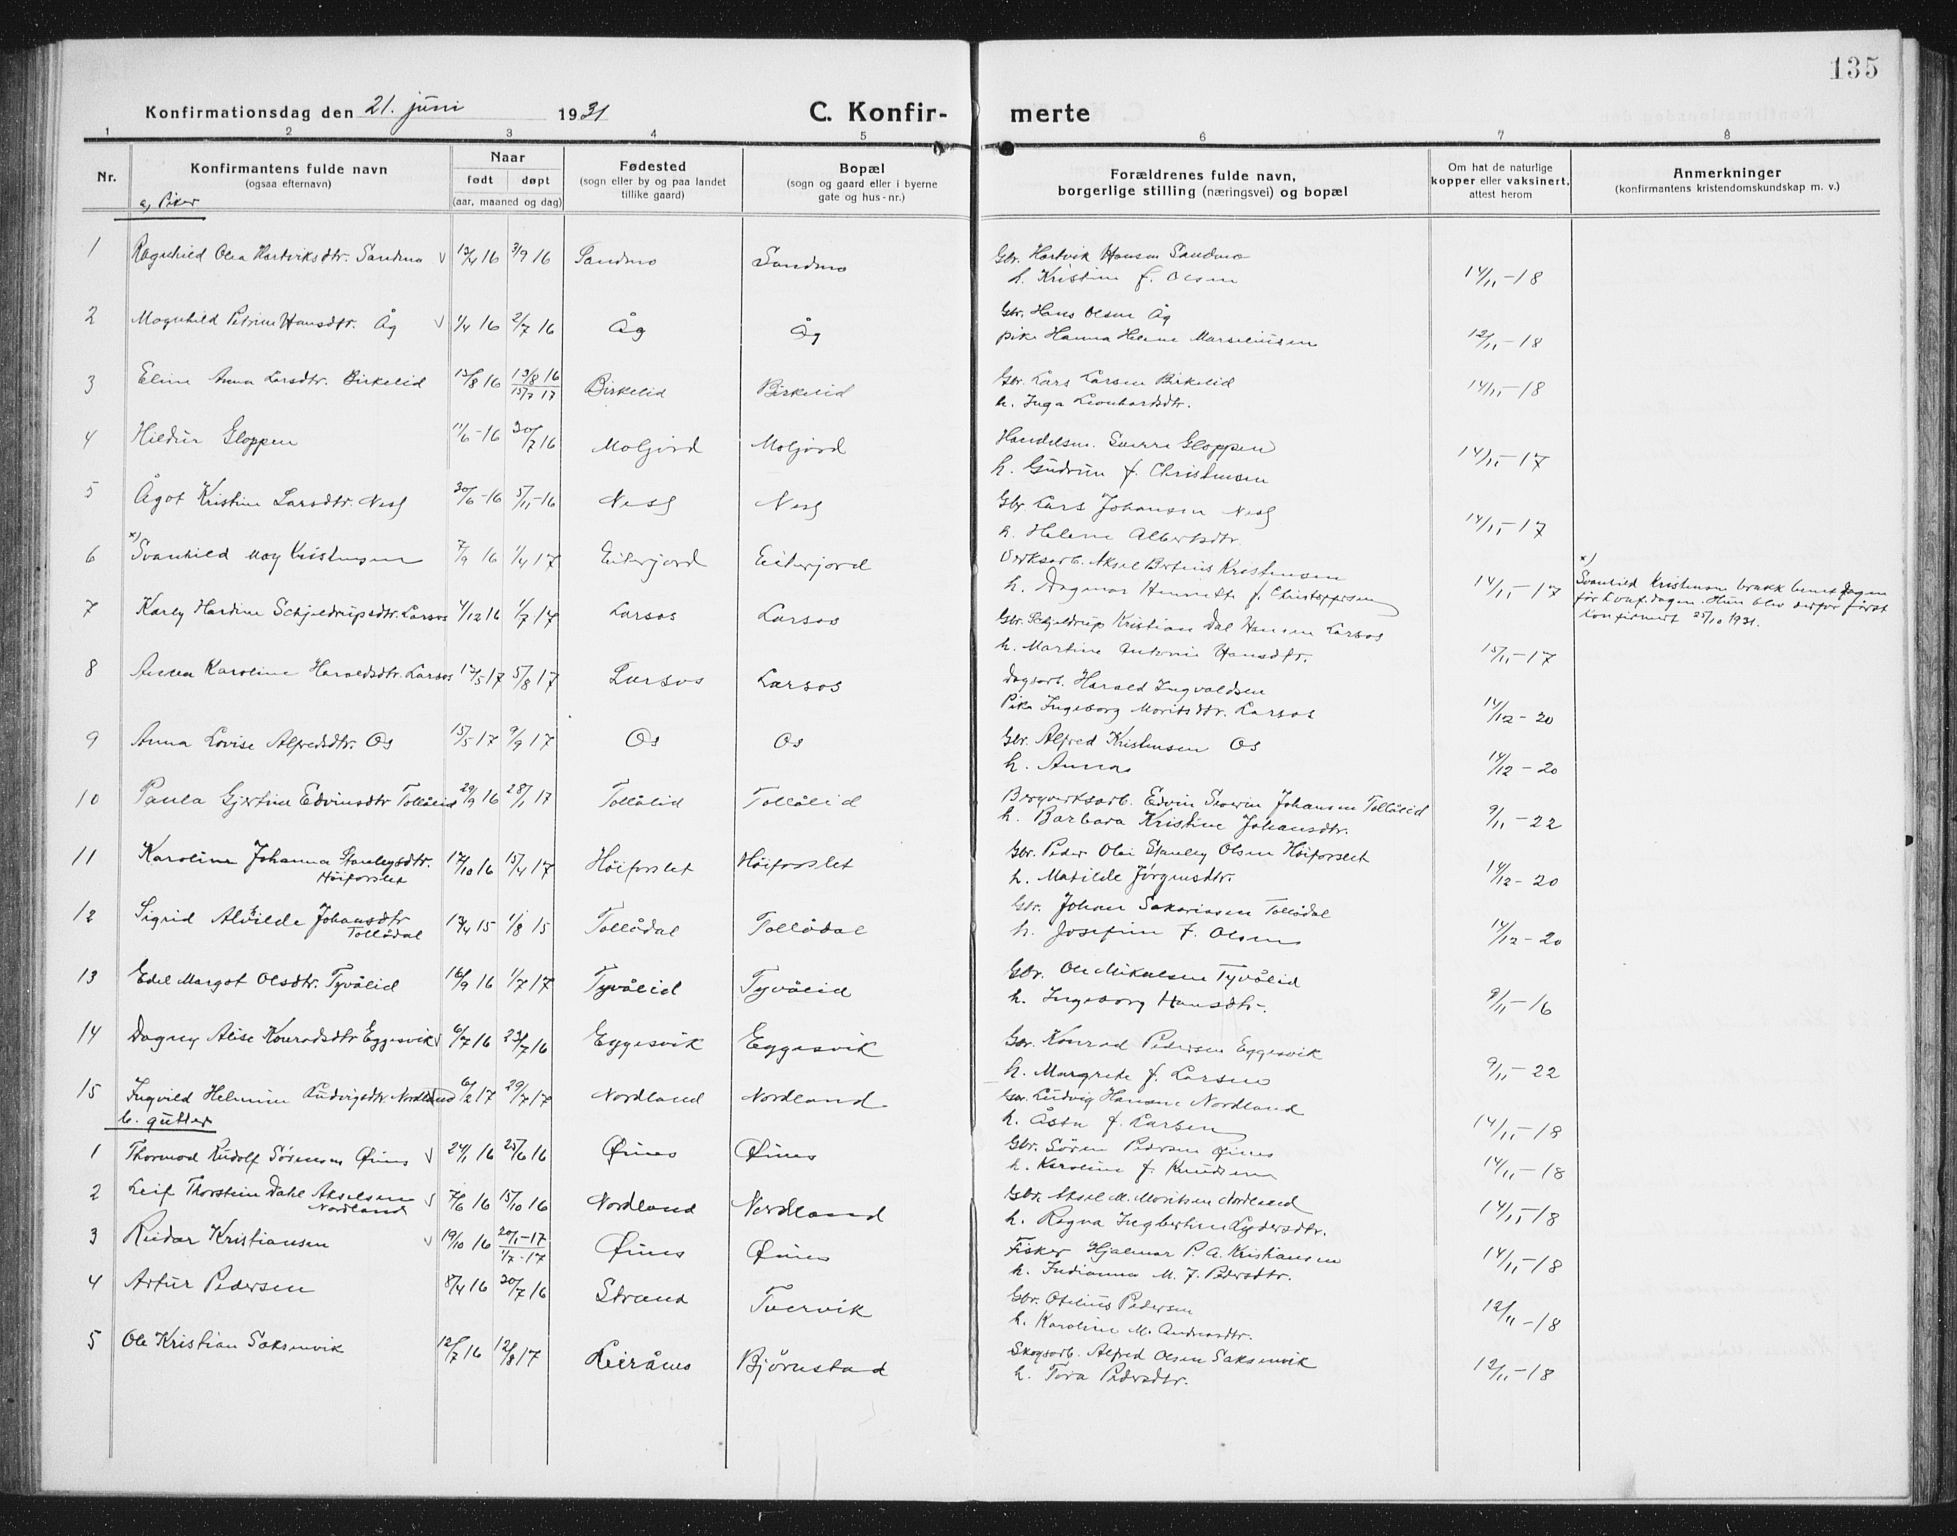 135
Konfirmationsdag den 21. juni 1931
C. Konfirmerte
1 2 3 4 5 6 7 8
Nr.
Konfirmantens fulde navn
(ogsaa efternavn)
Naar
født døpt
(aar, maaned og dag)
Fødested
(sogn eller by og paa landet
tillike gaard)
Bopæl
(sogn og gaard eller i byerne
gate og hus-nr.)
Forældrenes fulde navn,
borgerlige stilling (næringsvei) og bopæl
Om hat de naturlige
kopper eller vaksinert,
attest herom
Anmerkninger
(konfirmantens kristendomskundskap m. v.)
a, Piker
1 Ragnhild Olea Hartviksdtr. Sandmo v 13/4 16 3/9 16 Sandmo Sandmo Gbr. Hartvik Hansen Sandmo 14/11-18
h. Kristine f. Olsen
2 Magnhild Petrine Hansdtr. Åg v 1/4 16 2/7 16 Åg Åg Gbr. Hans Olsen Åg 12/11-18
pike Hanna Helene Marseliussen
3 Eline Anna Larsdtr. Birkelid 13/8 16 13/8 16 Birkelid Birkelid Gbr. Lars Larsen Birkelid 14/11-18
15/7 17
h. Inga Leonhardsdtr.
4 Hildur Gloppen 11/6-16 30/7 16 Moljord Moljord Handelsm. Sverre Gloppen 14/11-17
h. Gudrun f. Christensen
5 Ågot Kristine Larsdtr. Nesj 30/6-16 5/11-16 Nesj Nesj Gbr Lars Johansen Nesj 14/11-17
h. Helene Albertsdtr.
6 x) Svanhild May Kristensen 7/9 16 1/4 17 Eiterjord Eiterjord Verksarb. Aksel Bertins Kristensen 14/11-17
h. Dagmar Henriette f. Christoffersen
x)
Svanhild Kristensen brakk benet dagen
før konf.dagen. Hun blev derfor først
konfirmert 25/10 1931.
7 Karly Hardine Schjeldrupsdtr. Larsos 4/12 16 1/7 17 Larsos Larsos Gbr. Schjeldrup Kristian Dal Hansen Larsos 15/11-17
h. Martine Antonie Hansdtr.
8 Anna Karoline Haraldsdtr. Larsos 17/5 17 5/8 17 Larsos Larsos Dagarb. Harald Ingvaldsen 14/12-20
Pike Ingeborg Moritsdtr. Larsos
9 Anna Lovise Alfredsdtr. Os 15/5 17 9/9 17 Os Os Gbr. Alfred Kristensen Os 14/12-20
h. Anna
10 Paula Gjertine Edvinsdtr Tollålid 29/9 16 28/1 17 Tollålid Tollålid Bergverksarb. Edvin Severin Johansen Tollålid 9/11-22
h. Barbara Kristine Johansdtr.
11 Karoline Johanna Stanleysdtr. 17/10 16 15/4 17 Höiforslet Höiforslet Gbr. Peder Olai Stanley Olsen Höiforslet 14/12-20
Höiforslet
h. Matilde Jørgensdtr.
12 Sigrid Alvilde Johansdtr 13/4 15 1/8 15 Tollådal Tollådal Gbr. Johan Sakariassen Tollådal 14/12-20
Tollådal
h. Josefine f. Olsen
13 Edel Margot Olsdtr. Tyvålid 16/9 16 1/7 17 Tyvålid Tyvålid Gbr. Ole Mikalsen Tyvålid 9/11-16
h. Ingeborg Hansdtr.
14 Dagny Alise Konradsdtr Eggesvik v 6/7 16 23/7 16 Eggesvik Eggesvik Gbr. Konrad Pedersen Eggesvik 9/11-22
h. Margrete f. Larsen
15 Ingvild Helmine Ludvigsdtr. Nordland 6/2 17 29/7 17 Nordland Nordland Gbr. Ludvig Hansen Nordland 14/11-18
h. Åsta f. Larsen
b. gutter
1 Thormod Rudolf Sørensen Øines v 24/1 16 25/6 16 Øines Øines Gbr. Sören Pedersen Øines 14/11-18
h. Karoline f. Knudsen
2 Leif Thorstein Dahl Akselsen v 7/6 16 15/10 16 Nordland Nordland Gbr. Aksel M. Moritsen Nordland 14/11-18
Nordland
h. Ragna Ingbertine Lydersdtr.
3 Reidar Kristiansen v 19/10 16 20/1-17 Øines Øines Fisker Hjalmar P. A. Kristiansen 14/11-18
1/7-17
h. Indianna M. J. Pedersdtr.
4 Artur Pedersen 8/4 16 30/7 16 Strand Tvervik Gbr. Otelius Pedersen 12/11-18
h. Karoline M. Andreasdtr.
5 Ole Kristian Saksenvik 12/7 16 12/8 17 Leiråmo Bjørnstad Skogsarb. Alfred Olsen Saksenvik 12/11-18
h. Tora Pedersdtr.